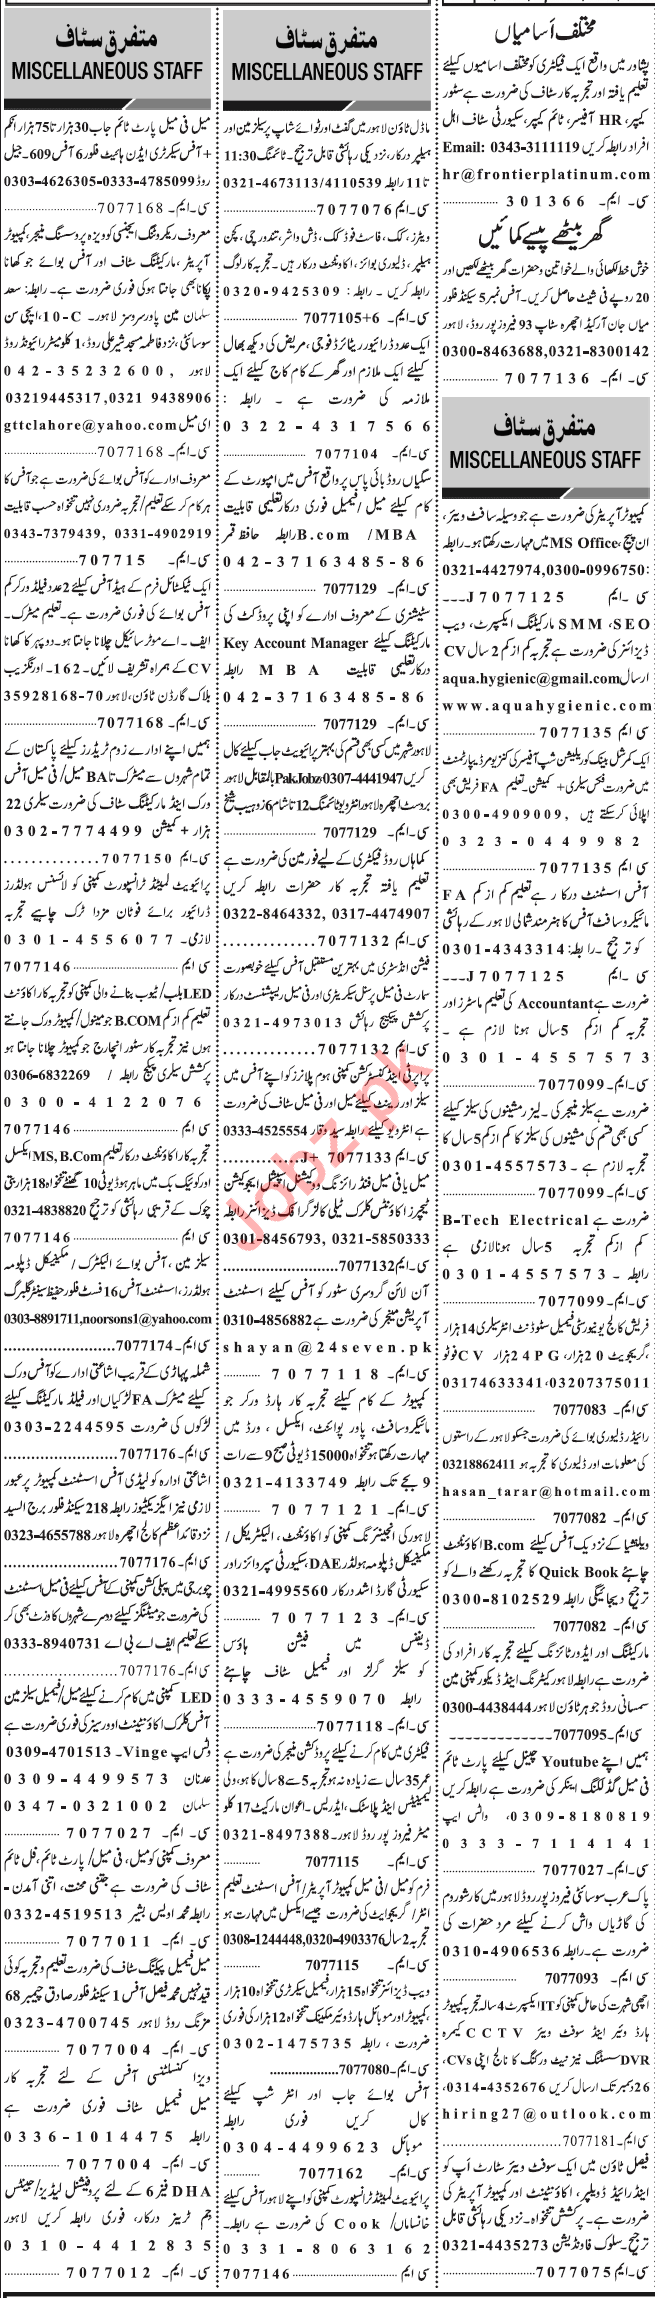 مختلف آسامیاں
پشاور میں واقع ایک فیکٹری کو مختلف اسامیوں کیلئے
تعلیم یافتہ اور تجربہ کار سٹاف کی ضرورت ہے سٹور
کیپر، HR آفیسر، ٹائم کیپر، سکیورٹی سٹاف اہل
افراد رابطہ کریں Email: 0343-3111119
hr@frontierplatinum.com
سی۔ ایم۔ 301366
گھر بیٹھے پیسے کمائیں
خوش خط لکھائی والے خواتین و حضرات گھر بیٹھے لکھیں اور
20 روپے فی شیٹ حاصل کریں۔ آفس نمبر 5 سیکنڈ فلور
میاں جان آرکیڈ اچھرہ سٹاپ 93 فیروز پور روڈ، لاہور
0300-8463688,0321-8300142
سی۔ ایم۔ 7077136
متفرق سٹاف
MISCELLANEOUS STAFF
کمپیوٹر آپریٹر کی ضرورت ہے جو وسیلہ سافٹ ویئر،
ان پیج، MS Office میں مہارت رکھتا ہو۔ رابطہ
:0321-4427974,0300-0996750
سی۔ ایم J7077125
SMM ،SEO مارکیٹنگ ایکسپرٹ، ویب
ڈیزائنر کی ضرورت ہے تجربہ کم از کم 2 سال CV
ارسال aqua.hygienic@gmail.com
www.aquahygienic.com
سی ایم 7077135
ایک کمرشل بینک کو ریلیشن شپ آفیسر کی کنزیومر ڈیپارٹمنٹ
میں ضرورت فکس سیلری + کمیشن۔ تعلیم FA فریش بھی
اپلائی کرسکتے ہیں 0300-4909009,
0323-0449982
سی ایم 7077135
آفس اسسٹنٹ درکار ہے تعلیم کم از کم FA
مائیکروسافٹ آفس کا ہنر مند شمالی لاہور کے رہائشی
کو ترجیح۔ رابطہ: 0301-4343314
سی۔ ایم J7077125
ضرورت ہے Accountant کی تعلیم ماسٹرز اور
تجربہ کم از کم 5 سال ہونا لازم ہے۔
0301-4557573
سی ایم۔ 7077099
ضرورت ہے سیلز منیجر کی۔ لیزر مشینوں کی سیلز کیلئے
کسی بھی قسم کی مشینوں کی سیلز کا کم از کم 5 سال کا
تجربہ لازم ہے۔ 0301-4557573
سی ایم۔ 7077099
ضرورت ہے B-Tech Electrical
کم از کم تجربہ 5 سال ہونا لازمی ہے
رابطہ۔ 0301-4557573
سی ایم۔ 7077099
فریش کالج یونیورسٹی فیمیل سٹوڈنٹ انٹر سیلری 14 ہزار
،گریجویٹ 20 ہزار، PG 24 ہزار CV فوٹو
03174633341،03207375011
سی ایم۔ 7077083
رائیڈر ڈلیوری بوائے کی ضرورت جسکو لاہور کے راستوں
کی معلومات اور ڈلیوری کا تجربہ ہو 03218862411
hasan_tarar@hotmail.com
سی ایم۔ 7077082
ویلنشیا کے نزدیک آفس کیلئے B.com اکاؤنٹنٹ
چاہئے Quick Book کا تجربہ رکھنے والے کو
ترجیح دیجائیگی رابطہ 0300-8102529
سی ایم۔ 7077082
مارکیٹنگ اور ایڈورٹائزنگ کیلئے تجربہ کار افراد کی
ضرورت ہے رابطہ لاہور کیٹرنگ اینڈ ڈیکور کمپنی مین
سمسانی روڈ جوہر ٹاؤن لاہور 0300-4438444
سی ایم۔ 7077095
ہمیں اپنے Youtube چینل کیلئے پارٹ ٹائم
فی میل گڈ لکنگ اینکر کی ضرورت ہے رابطہ کریں
0309-8180819، واٹس ایپ
0333-7114141
سی۔ ایم۔ 7077027
پاک عرب سوسائٹی فیروز پور روڈ لاہور میں کار شوروم
کی گاڑیاں واش کرنے کیلئے مرد حضرات کی
ضرورت ہے۔ رابطہ 0310-4906536
سی۔ ایم۔ 7077093
اچھی شہرت کی حامل کمپنی کو IT ایکسپرٹ 4 سالہ تجربہ کمپیوٹر
ہارڈ ویئر اینڈ سوفٹ ویئر CCTV کیمرہ
DVR سسٹنگ نیز نیٹ ورکنگ کا نالج اپنی CVs،
26 دسمبر تک ارسال کریں 0314-4352676،
hiring27@outlook.com
سی ایم۔ 7077181
فیصل ٹاؤن میں ایک سوفٹ ویئر سٹارٹ اپ کو
اینڈرائیڈ ڈویلپر، اکاؤنٹینٹ اور کمپیوٹر آپریٹر کی
ضرورت ہے۔ پرکشش تنخواہ۔ نزدیکی رہائشی قابل
ترجیح۔ سلوک فاؤنڈیشن 0321-4435273
سی ایم۔ 7077075
متفرق سٹاف
MISCELLANEOUS STAFF
ماڈل ٹاؤن لاہور میں گفٹ اور ٹوائے شاپ پر سیلز مین اور
ہیلپر درکار، نزدیکی رہائشی قابل ترجیح۔ ٹائمنگ 11:30
تا 11 رابطہ 0321-4673113/4110539
سی۔ ایم 7077076
ویٹرز، کک، فاسٹ فوڈ کک، ڈش واشر، تندورچی، کچن
ہیلپر، ڈلیوری بوائز، اکاؤنٹنٹ درکار ہیں۔ تجربہ کار لوگ
رابطہ کریں۔ رابطہ: 0320-9425309
سی۔ ایم۔ 7077105+6
ایک عدد ڈرائیور ریٹائرڈ فوجی، مریض کی دیکھ بھال
کیلئے ایک ملازم اور گھر کے کام کاج کیلئے ایک
ملازمہ کی ضرورت ہے۔ رابطہ:
0322-4317566
سی۔ ایم۔ 7077104
سگیاں روڈ بائی پاس پر واقع آفس میں امپورٹ کے
کام کیلئے میل/فیمیل فوری درکار تعلیمی قابلیت
B.com /MBA رابطہ حافظ قمر
042-37163485-86
سی۔ ایم۔ 7077129
سٹیشنری کے معروف ادارے کو اپنی پروڈکٹ کی
مارکیٹنگ کیلئے Key Account Manager
درکار تعلیمی قابلیت MBA رابطہ
042-37163485-86
سی۔ ایم۔ 7077129
لاہور شہر میں کسی بھی قسم کی بہتر پرائیویٹ جاب کیلئے کال
کریں PakJobz 0307-4441947 بالمقابل لاہور
بروسٹ اچھرہ لاہور انٹرویو ٹائمنگ 12 تا شام 6 زوہیب شیخ
سی۔ ایم۔ 7077129
کماہاں روڈ فیکٹری کے لیے فورمین کی ضرورت ہے
تعلیم یافتہ تجربہ کار حضرات رابطہ کریں
0322-8464332, 0317-4474907
سی۔ ایم 7077132
فیشن انڈسٹری میں بہترین مستقبل آفس کیلئے خوبصورت
سمارٹ فی میل پرسنل سیکریٹری اور فی میل ریسپشنسٹ درکار
پرکشش پیکیج رہائش 0321-4973013
سی۔ ایم 7077132
پراپرٹی اینڈ کنسٹرکشن کمپنی ہوم پلانرز کو اپنے آفس میں
سیلز اور رینٹ کیلئے میل اور فی میل سٹاف کی ضرورت
ہے انٹرویو کیلئے رابطہ سید وقار 0333-4525554
سی ایم 7077133 J+
میل یا فی میل فنڈ رائزنگ ووکیشنل اسپیشل ایجوکیشن
ٹیچرز اکاؤنٹس کلرک ٹیلی کالرز گرافک ڈیزائنر رابطہ
0301-8456793, 0321-5850333
سی ایم۔ 7077132
آن لائن گروسری سٹور کو آفس کیلئے اسسٹنٹ
آپریشن منیجر کی ضرورت ہے 0310-4856882
shayan@24seven.pk
سی۔ ایم۔ 7077118
کمپیوٹر کے کام کیلئے تجربہ کار ہارڈ ورکر جو
مائیکروسافٹ، پاور پوائنٹ، ایکسل، ورڈ میں
مہارت رکھتا ہو تنخواہ 15000 ڈیوٹی صبح 9 سے رات
9 بجے تک رابطہ 0321-4133749
سی۔ ایم۔ 7077121
لاہور کی انجینئرنگ کمپنی کو اکاؤنٹنٹ، الیکٹریکل/
مکینیکل ڈپلومہ ہولڈر DAE، سکیورٹی سپروائزر اور
سکیورٹی گارڈ اشد درکار 0321-4995560
سی۔ ایم۔ 7077123
ڈیفنس میں فیشن ہاؤس
کو سیلز گرلز اور فیمیل سٹاف چاہئے
رابطہ 0333-4559070
سی۔ ایم۔ 7077118
فیکٹری میں کام کرنے کیلئے پروڈکشن منیجر کی ضرورت ہے
عمر 35 سال سے زیادہ نہ ہو تجربہ 5 سے 8 سال کا ہو، ولی
لیمینیٹس اینڈ پلاسٹک، ایڈریس۔ اعوان مارکیٹ 17 کلو
میٹر فیروز پور روڈ لاہور۔ 0321-8497388
سی ایم۔ 7077115
فرم کو میل/فی میل کمپیوٹر آپریٹر/آفس اسسٹنٹ تعلیم
انٹر/گریجوایٹ کی ضرورت جسے ایکسل میں مہارت ہو
تجربہ 2 سال 0308-1244448,0320-4903376
سی ایم۔ 7077115
ویب ڈیزائنر تنخواہ 15 ہزار، فیمیل سیکرٹری تنخواہ 10 ہزار
،کمپیوٹر اور موبائل ہارڈ ویئر مکینک تنخواہ 12 ہزار کی فوری
ضرورت، رابطہ 0302-1475735
سی۔ ایم۔ 7077080
آفس بوائے جاب اور انٹر شپ کیلئے
کال کریں فوری رابطہ
موبائل 0304-4499623
سی۔ ایم۔ 7077162
پرائیویٹ لمیٹڈ ٹرانسپورٹ کمپنی کو اپنے لاہور آفس کیلئے
خانساماں/Cook کی ضرورت ہے رابطہ۔
0331-8063162
سی ایم 7077146
متفرق سٹاف
MISCELLANEOUS STAFF
میل فی میل پارٹ ٹائم جاب 30 ہزار تا 75 ہزار انکم
+ آفس سیکرٹری ایڈن ہائیٹ فلور 6 آفس 609۔ جیل
روڈ 0303-4626305-0333-4785099
سی۔ ایم۔ 7077168
معروف ریکروٹنگ ایجنسی کو ویزہ پروسسنگ منیجر، کمپیوٹر
آپریٹر، مارکیٹنگ سٹاف اور آفس بوائے جو کھانا
پکانا بھی جانتا ہو کی فوری ضرورت ہے۔ رابطہ: سعد
سلمان مین پاور سروسز لاہور۔ 10-C، ایچی سن
سوسائٹی، نزد فاطمہ مسجد شیر علی روڈ، 1 کلومیٹر رائیونڈ روڈ
لاہور, 042-35232600
03219445317,0321 9438906
ای میل gttclahore@yahoo.com
سی۔ ایم۔ 7077168
معروف ادارے کو آفس بوائے کی ضرورت ہے جو آفس کا
ہر کام کر سکے تعلیم/تجربہ ضروری نہیں تنخواہ حسب قابلیت
0343-7379439, 0331-4902919
سی۔ ایم۔ 707715
ایک ٹیکسٹائل فرم کے ہیڈ آفس کیلئے 2 عدد فیلڈ ورکر کم
آفس بوائے کی فوری ضرورت ہے۔ تعلیم میٹرک۔
ایف۔ اے موٹر سائیکل چلانا جانتا ہو۔ دوپہر کا کھانا
CV کے ہمراہ تشریف لائیں۔ 162۔ اورنگزیب
بلاک گارڈن ٹاؤن، لاہور 35928168-70
سی۔ ایم۔ 7077168
ہمیں اپنے ادارے زوم ٹریڈرز کیلئے پاکستان کے
تمام شہروں سے میٹرک تا BA میل/فی میل آفس
ورک اینڈ مارکیٹنگ سٹاف کی ضرورت سیلری 22
ہزار + کمیشن 0302-7774499
سی۔ ایم 7077150
پرائیویٹ لمیٹڈ ٹرانسپورٹ کمپنی کو لائسنس ہولڈرز
ڈرائیور برائے فوٹان مزدا ٹرک چاہیے تجربہ
لازمی۔ 0301-4556077
سی ایم 7077146
LED بلب/ٹیوب بنانے والی کمپنی کو تجربہ کار اکاؤنٹ
تعلیم کم از کم B.COM جو مینول/کمپیوٹر ورک جانتے
ہوں نیز تجربہ کار سٹور انچارج جو کمپیوٹر چلانا جانتا ہو
پرکشش سیلری پیکج رابطہ/ 0306-6832269
0300-4122076
سی ایم 7077146
تجربہ کار اکاؤنٹنٹ درکار تعلیم MS, B.Com ایکسل
اور کوئیک بک میں ماہر ہو ڈیوٹی 10 گھنٹے تنخواہ 18 ہزار بتی
چوک کے قریبی رہائشی کو ترجیح 0321-4838820
سی ایم 7077146
سیلز مین، آفس بوائے الیکٹرک/مکینیکل ڈپلومہ
ہولڈرز، اسسٹنٹ آفس 16 فسٹ فلور حفیظ سینٹر گلبرگ
0303-8891711,noorsons1@yahoo.com
سی ایم۔ 7077174
شملہ پہاڑی کے قریب اشاعتی ادارے کو آفس ورک
کیلئے میٹرک FA لڑکیاں اور فیلڈ مارکیٹنگ کیلئے
لڑکوں کی ضرورت 0303-2244595
سی ایم۔ 7077176
اشاعتی ادارہ کو لیڈی آفس اسسٹنٹ کمپیوٹر پر عبور
لازمی نیز ایگزیکٹیوز رابطہ 218 سیکنڈ فلور برج السید
نزد قائد اعظم کالج اچھرہ لاہور 0323-4655788
سی ایم۔ 7077176
چوبرجی میں پبلی کیشن کمپنی کے آفس کیلئے فی میل اسسٹنٹ
کی ضرورت جو میٹنگز کیلئے دوسرے شہروں کا وزٹ بھی کر
سکے تعلیم ایف اے بی اے 0333-8940731
سی ایم۔ 7077176
LED کمپنی میں کام کرنے کیلئے میل/فیمیل سیلز مین
آفس کلرک اکاؤنٹینٹ اوورسیز کی فوری ضرورت ہے
وٹس ایپ Vinge۔ 0309-4701513
عدنان 0309-4499573
سلمان 0347-0321002
سی۔ ایم۔ 7077027
معروف کمپنی کو میل، فی میل/پارٹ ٹائم، فل ٹائم
سٹاف کی ضرورت ہے جتنی محنت، اتنی آمدن۔
رابطہ محمد اویس بشیر 0332-4519513
سی۔ ایم۔ 7077011
میل فیمیل پیکنگ سٹاف کی ضرورت تعلیم و تجربہ کوئی
قید نہیں محمد فیصل آفس 1 سیکنڈ فلور صادق چیمبر 68
مزنگ روڈ لاہور 0323-4700745
سی۔ ایم۔ 7077004
ویزا کنسلٹنسی آفس کے لئے تجربہ کار
میل فیمیل سٹاف فوری ضرورت ہے
رابطہ 0336-1014475
سی۔ ایم۔ 7077004
DHA فیز 6 کے لئے پروفیشنل لیڈیز/جینٹس
جم ٹرینر درکار، فوری رابطہ کریں لاہور
0310-4412835
سی۔ ایم۔ 7077012
Jobz.pk